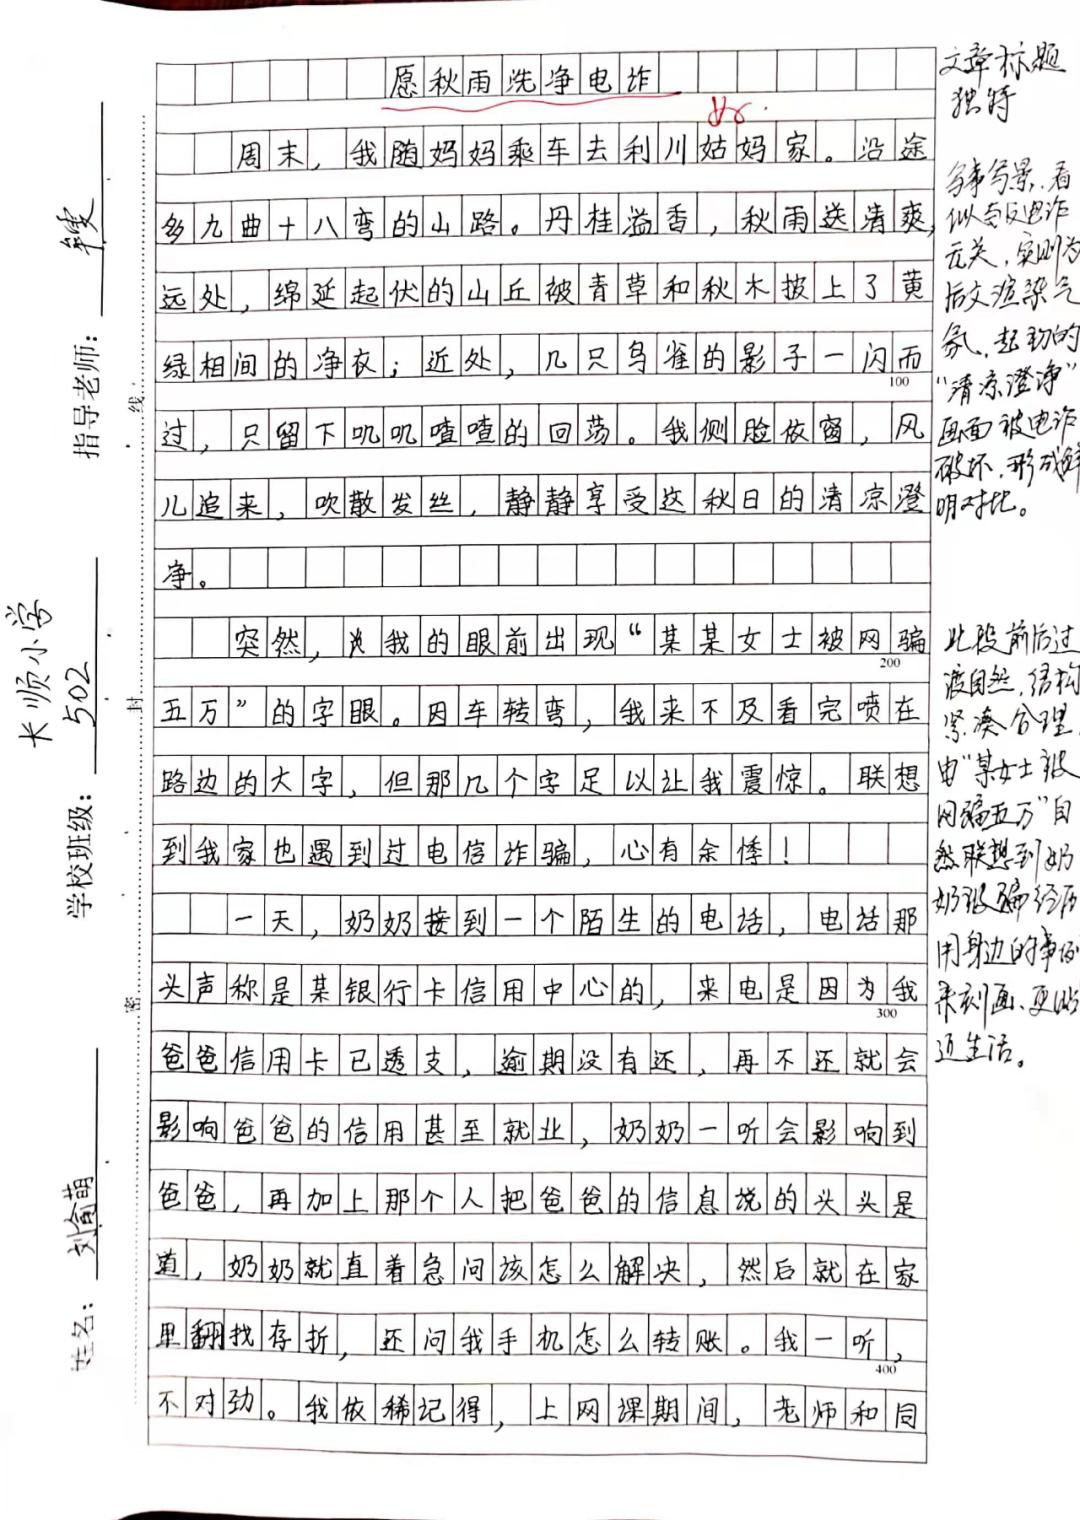 愿秋雨洗净电诈
好
周末，我随妈妈乘车去利川姑妈家。沿途
多九曲十八弯的山路。丹桂溢香，秋雨送清爽，
远处，绵延起伏的山丘被青草和秋木披上了黄
绿相间的净衣；近处，几只鸟雀的影子一闪而
100
过，只留下叽叽喳喳的回荡。我侧脸依窗，风
儿追来，吹散发丝，静静享受这秋日的清凉澄
净。
突然，我的眼前出现“某某女士被网骗
200
五万”的字眼。因车转弯，我来不及看完喷在
路边的大字，但那几个字足以让我震惊。联想
到我家也遇到过电信诈骗，心有余悸！
一天，奶奶接到一个陌生的电话，电话那
头声称是某银行卡信用中心的，来电是因为我
300
爸爸信用卡已透支，逾期没有还，再不还就会
影响爸爸的信用甚至就业，奶奶一听会影响到
爸爸，再加上那个人把爸爸的信息说的头头是
道，奶奶就直着急问该怎么解决，然后就在家
里翻找存折，还问我手机怎么转账。我一听，
400
不对劲。我依稀记得，上网课期间，老师和同
文章标题
独特
写事写景，看
似与反电诈
无关，实则为
后文渲染气
氛，起初的
“清凉澄净”
画面被电诈
破坏，形成鲜
明对比。
此段前后过
渡自然，结构
紧凑合理，
由“某女士被
网骗五万”自
然联想到奶
奶被骗经历
用身边的事例
来刻画、更贴
近生活。
指导老师：
线
学校班级：
长顺小学
502
封
密
姓名：